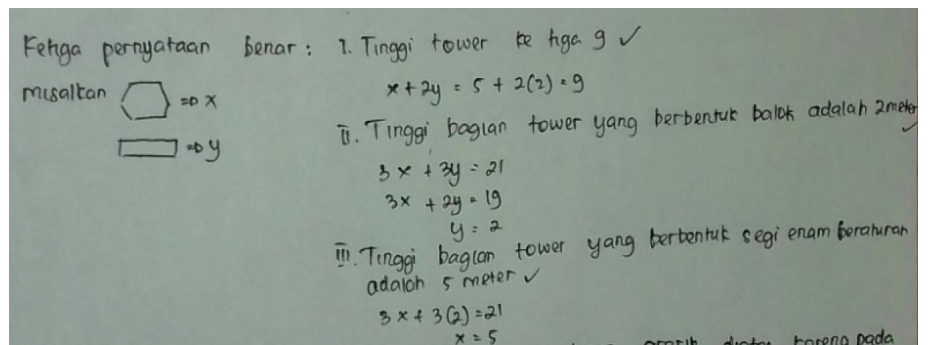 Ketiga pernyataan benar : 1. Tinggi tower ke tiga 9 ✓
misalkan ⇒ x
x + 2y = 5 + 2(2) = 9
⇒ y
II. Tinggi bagian tower yang berbentuk balok adalah 2 meter ✓
3x + 3y = 21
3x + 2y = 19
y = 2
III. Tinggi bagian tower yang berbentuk segi enam beraturan
adalah 5 meter ✓
3x + 3(2) = 21
x = 5
karena pada